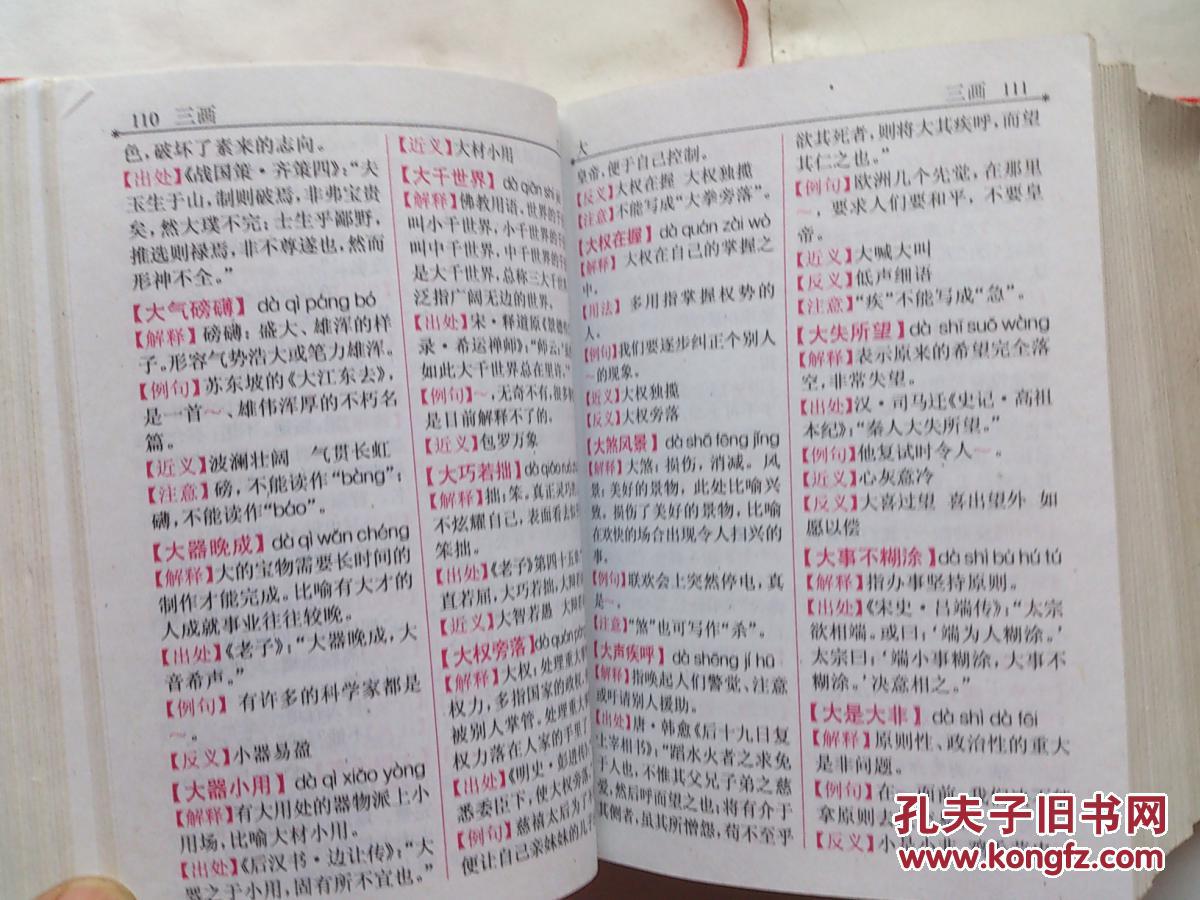 110 三画
色,破坏了素来的志向。
【出处】《战国策·齐策四》:“夫
玉生于山,制则破焉,非弗宝贵
矣,然大璞不完;士生乎鄙野,
推选则禄焉,非不尊遂也,然而
形神不全。”
【大气磅礴】dà qì páng bó
【解释】磅礴:盛大、雄浑的样
子。形容气势浩大或笔力雄浑。
【例句】苏东坡的《大江东去》,
是一首~、雄伟浑厚的不朽名
篇。
【近义】波澜壮阔 气贯长虹
【注意】磅,不能读作“bàng”;
礴,不能读作“báo”。
【大器晚成】dà qì wǎn chéng
【解释】大的宝物需要长时间的
制作才能完成。比喻有大才的
人成就事业往往较晚。
【出处】《老子》:“大器晚成,大
音希声。”
【例句】有许多的科学家都是
~。
【反义】小器易盈
【大器小用】dà qì xiǎo yòng
【解释】有大用处的器物派上小
用场,比喻大材小用。
【出处】《后汉书·边让传》:“大
器之于小用,固有所不宜也。”
【近义】大材小用
【大千世界】dà qiān shì
【解释】佛教用语,世界的千
叫小千世界,小千世界的千
叫中千世界,中千世界的千
是大千世界,总称三大千世界
泛指广阔无边的世界。
【出处】宋·释道原《景德传
录·希运禅师》:“师云:
如此大千世界总在里许。”
【例句】~,无奇不有,很多
是目前解释不了的。
【近义】包罗万象
【大巧若拙】dà qiǎo ruò
【解释】拙:笨。真正灵巧
不炫耀自己,表面看去
笨拙。
【出处】《老子》第四十五
直若屈,大巧若拙,大辩若
【近义】大智若愚 大辩
【大权旁落】dà quán páng
【解释】大权:处理重大
权力,多指国家的政权。
被别人掌管。处理重大
权力落在人家的手里了
【出处】《明史·彭进传》
悉委臣下,使大权旁落
【例句】慈禧太后为了
便让自己亲妹妹的儿子
三画 111
大
皇帝,便于自己控制。
【反义】大权在握 大权独揽
【注意】不能写成“大拳旁落”。
【大权在握】dà quán zài wò
【解释】大权在自己的掌握之
中。
【用法】多用指掌握权势的
人。
【例句】我们要逐步纠正个别人
~的现象。
【近义】大权独揽
【反义】大权旁落
【大煞风景】dà shā fēng jǐng
【解释】大煞:损伤,消减。风
景:美好的景物,此处比喻兴
致。损伤了美好的景物,比喻
在欢快的场合出现令人扫兴的
事。
【例句】联欢会上突然停电,真
是~。
【注意】“煞”也可写作“杀”。
【大声疾呼】dà shēng jí hū
【解释】指唤起人们警觉、注意
或吁请别人援助。
【出处】唐·韩愈《后十九日复
上宰相书》:“蹈水火者之求免
于人也,不惟其父兄子弟之慈
爱,然后呼而望之也;将有介于
其侧者,虽其所憎怨,苟不至乎
欲其死者,则将大其疾呼,而望
其仁之也。”
【例句】欧洲几个先觉,在那里
~,要求人们要和平,不要皇
帝。
【近义】大喊大叫
【反义】低声细语
【注意】“疾”不能写成“急”。
【大失所望】dà shī suǒ wàng
【解释】表示原来的希望完全落
空,非常失望。
【出处】汉·司马迁《史记·高祖
本纪》:“秦人大失所望。”
【例句】他复试时令人~。
【近义】心灰意冷
【反义】大喜过望 喜出望外 如
愿以偿
【大事不糊涂】dà shì bù hú tú
【解释】指办事坚持原则。
【出处】《宋史·吕端传》:“太宗
欲相端。或曰:‘端为人糊涂。’
太宗曰:‘端小事糊涂,大事不
糊涂。’决意相之。”
【大是大非】dà shì dà fēi
【解释】原则性、政治性的重大
是非问题。
【例句】在
拿原则
【反义】小是小非
孔夫子旧书网
www.kongfz.com